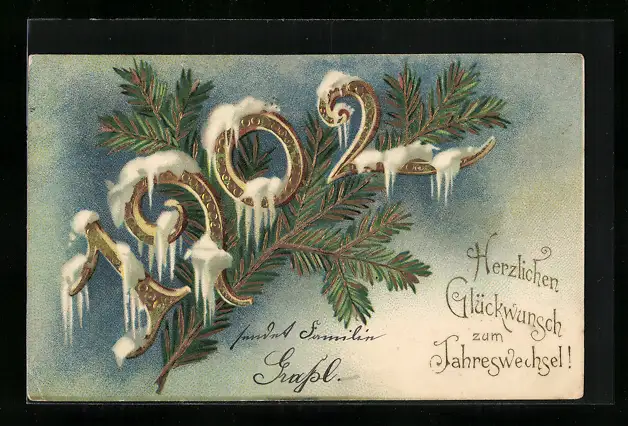 1902
Herzlichen
Glückwunsch
zum
Jahreswechsel!
sendet Familie
Graßl.